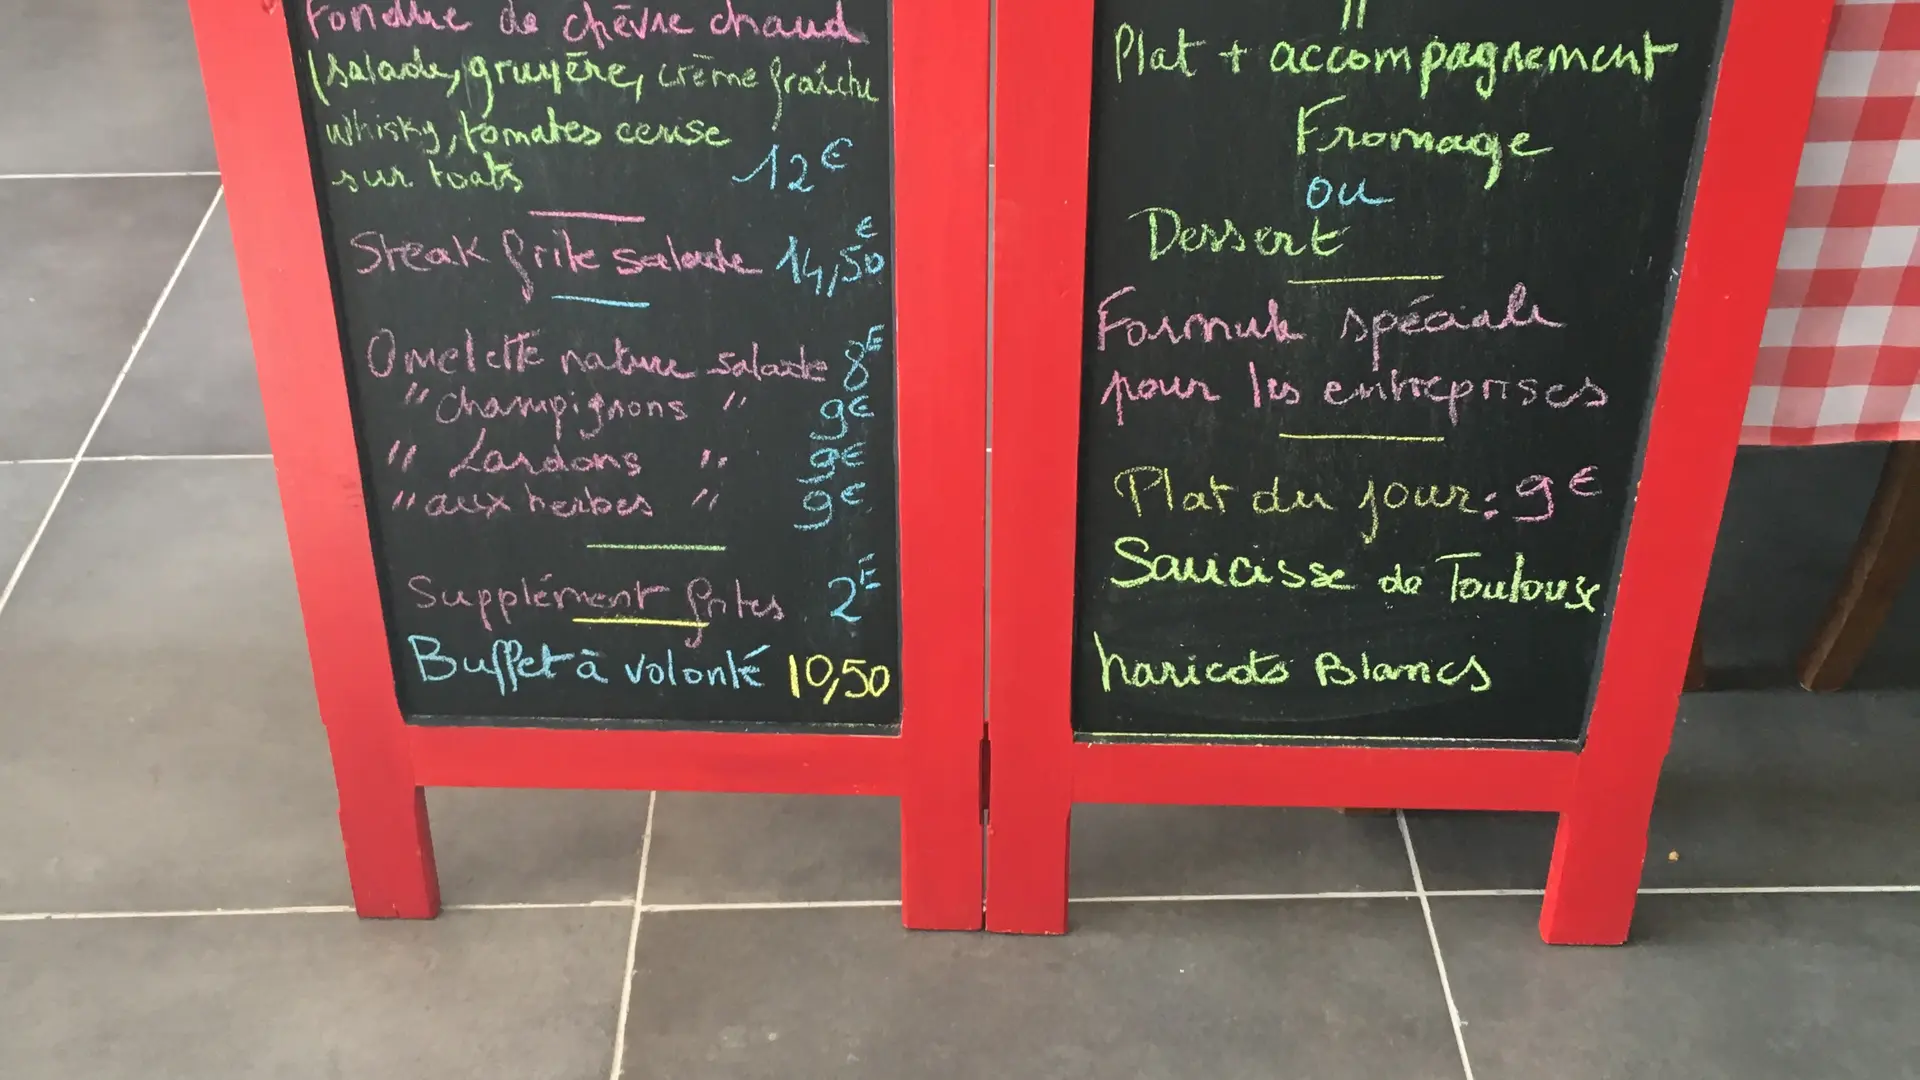 Fondue de chèvre chaud
(salade, gruyère, crème fraîche
whisky, tomates cerise
sur toats 12€
Steak frite salade 14,50€
Omelette nature salade 8€
" champignons " 9€
" Lardons " 9€
" aux herbes " 9€
Supplément frites 2€
Buffet à volonté 10,50
Plat + accompagnement
Fromage
ou
Dessert
Formule spéciale
pour les entreprises
Plat du jour: 9€
Saucisse de Toulouse
haricots Blancs